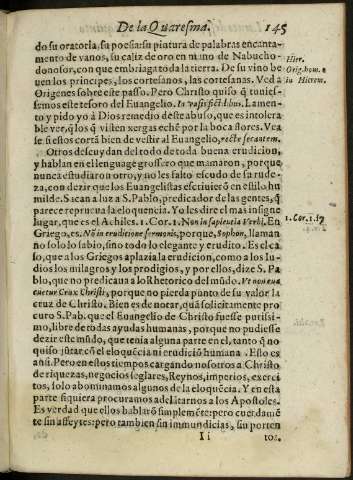 De la Quaresma. 145
do su oratoria, su poesia: su pintura de palabras encanta-
mento de vanos, su caliz de oro en mano de Nabucho-
donosor, con que embriaga toda la tierra. De su vino be
uen los principes, los cortesanos, las cortesanas. Ved a
Origenes sobre este passo. Pero Christo quiso q̃ tuuies-
semos este tesoro del Euangelio. In vasis fictilibus. Lamen-
to y pido yo à Dios remedio deste abuso, que es intolera
ble ver, q̃ los q̃ visten xergas eché por la boca flores. Vea
se si estos cortã bien de vestir al Euangelio, recte secantem.
Otros descuydan del todo de toda buena erudicion,
y hablan en el lenguage grossero que mamaron, porque
nunca estudiaron otro, y no les falto escudo de su rude-
za, con dezir que los Euangelistas escriuierõ en estilo hu
milde. Sacan a luz a S. Pablo, predicador de las gentes, q̃
parece reprueua la eloquencia. Yo les dire el mas insigne
lugar, que es el Achiles. 1. Cor. 1. Non in sapientia Verbi, En
Griego, es. Nõ in eruditione sermonis, porque, Sophon, llaman
no solo lo sabio, sino todo lo elegante y erudito. Es el ca
so, que a los Griegos aplazia la erudicion, como a los Iu-
dios los milagros y los prodigios, y por ellos, dize S. Pa
blo, que no predicaua a lo Rhetorico del mũdo. Vt non eua
cuetur Crux Christi, porque no pierda punto de su valor la
cruz de Christo, Bien es de notar, quã solicitamente pro
curo S. Pab. que el Euangelio de Christo fuesse purissi-
mo, libre de todas ayudas humanas, porque no pudiesse
dezir este mũdo, que tenia alguna parte en el, tanto q̃ no
quiso jũtar cõ el eloquẽcia ni erudiciõ humana. Esto es
ansi. Pero en estos tiempos cargando nosotros a Christo
de riquezas, negocios seglares, Reynos, imperios, exerci
tos, solo abominamos algunos de la eloquẽcia. Y en esta
parte siquiera procuramos adelitarnos a los Apostoles.
Es verdad que ellos hablarõ simplemẽte: pero cuerdamẽ
te sin affeytes: pero tambien sin immundicias, su porten
Ii tos.
Hier.
Orig. hom. 2
in Hierem.
1. Cor. 1. 17